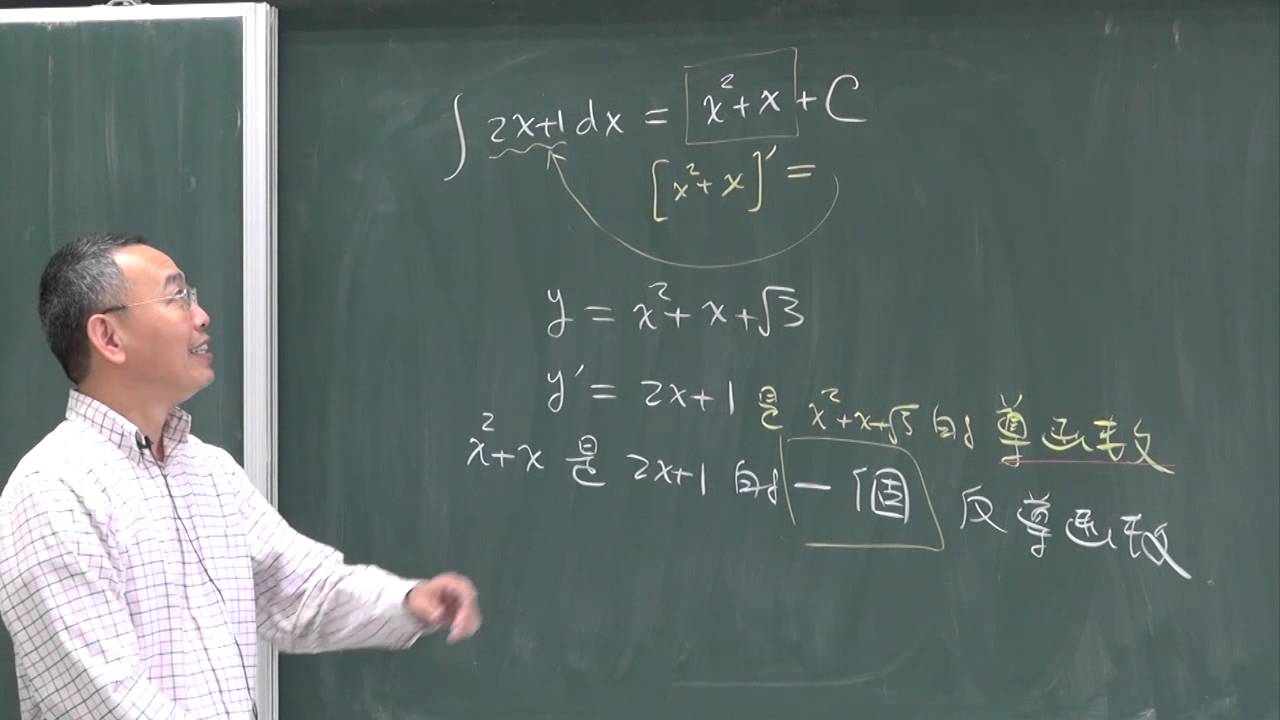 ∫ 2x+1 dx = x²+x + C
[x²+x]' =
y = x²+x+√3
y' = 2x+1 是 x²+x+√3 的 導函数
x²+x 是 2x+1 的 一個 反導函数